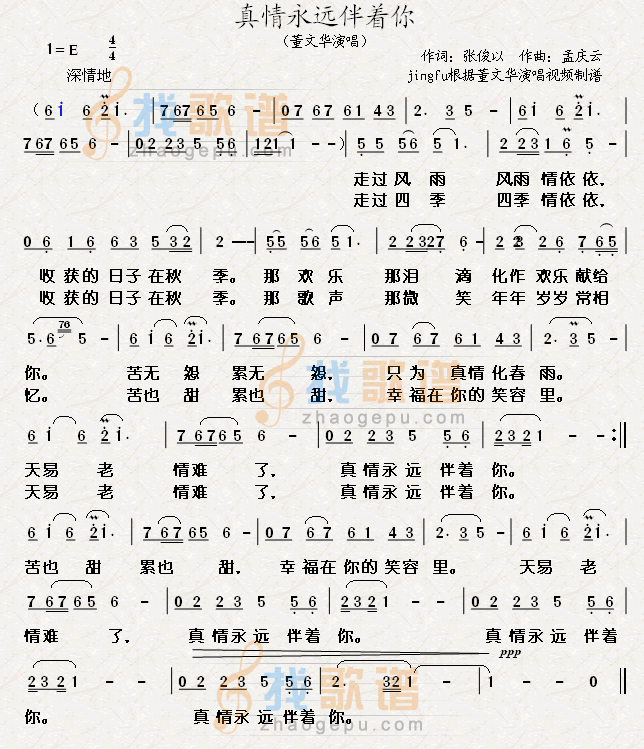 真情永远伴着你
（董文华演唱）
1=E 4/4
作词：张俊以 作曲：孟庆云
深情地
jingfu根据董文华演唱视频制谱
（6 i 6 2i. | 7 6765 6 | 067 67 61 43 | 2. 3 5 - | 6 i 6 2i. |
767 65 6 - | 02 235 5 6 | 1 2 1 1 - -） | 5 5 56 5. | 2 2 3 1 6 5 - |
走过风雨 风雨情依依，
走过四季 四季情依依，
06 16 63 5 32 | 2 - - - | 55 56 5 1. | 2 2327 6 - | 2 23 26 765 |
收获的日子在秋 季。那欢乐 那泪 滴化作欢乐献给
收获的日子在秋 季。那歌声 那微 笑年年岁岁常相
5. 6 76 5 - | 6 i 6 2i. | 7 6765 6 - | 0 7 6 7 6 1 4 3 | 2. 3 5 - |
你。 苦无 怨 累无 怨， 只为 真情化春雨。
忆。 苦也 甜 累也 甜， 幸福在你的笑容里。
6 i 6 2i. | 7 6765 6 - | 02 235 5 6 | 2321 - - :||
天易 老 情难 了， 真情永远伴着你。
天易 老 情难 了， 真情永远伴着你。
6 i 6 2i. | 767 65 6 - | 07 67 61 43 | 2. 3 5 - | 6 i 6 2i. |
苦也 甜 累也 甜， 幸福在你的笑容里。 天易 老
7 6765 6 - | 02 235 5 6 | 2321 - - | 02 235 5 6 |
情难 了， 真情永远伴着你。 真情永远伴着
ppp
2321 - - | 02 235 5 6 | 2. 321 - | 1 - - 0 ||
你。 真情永远伴着你。
找歌谱
zhaogepu.com
找歌谱
zhaogepu.com
找歌谱
zhaogepu.com